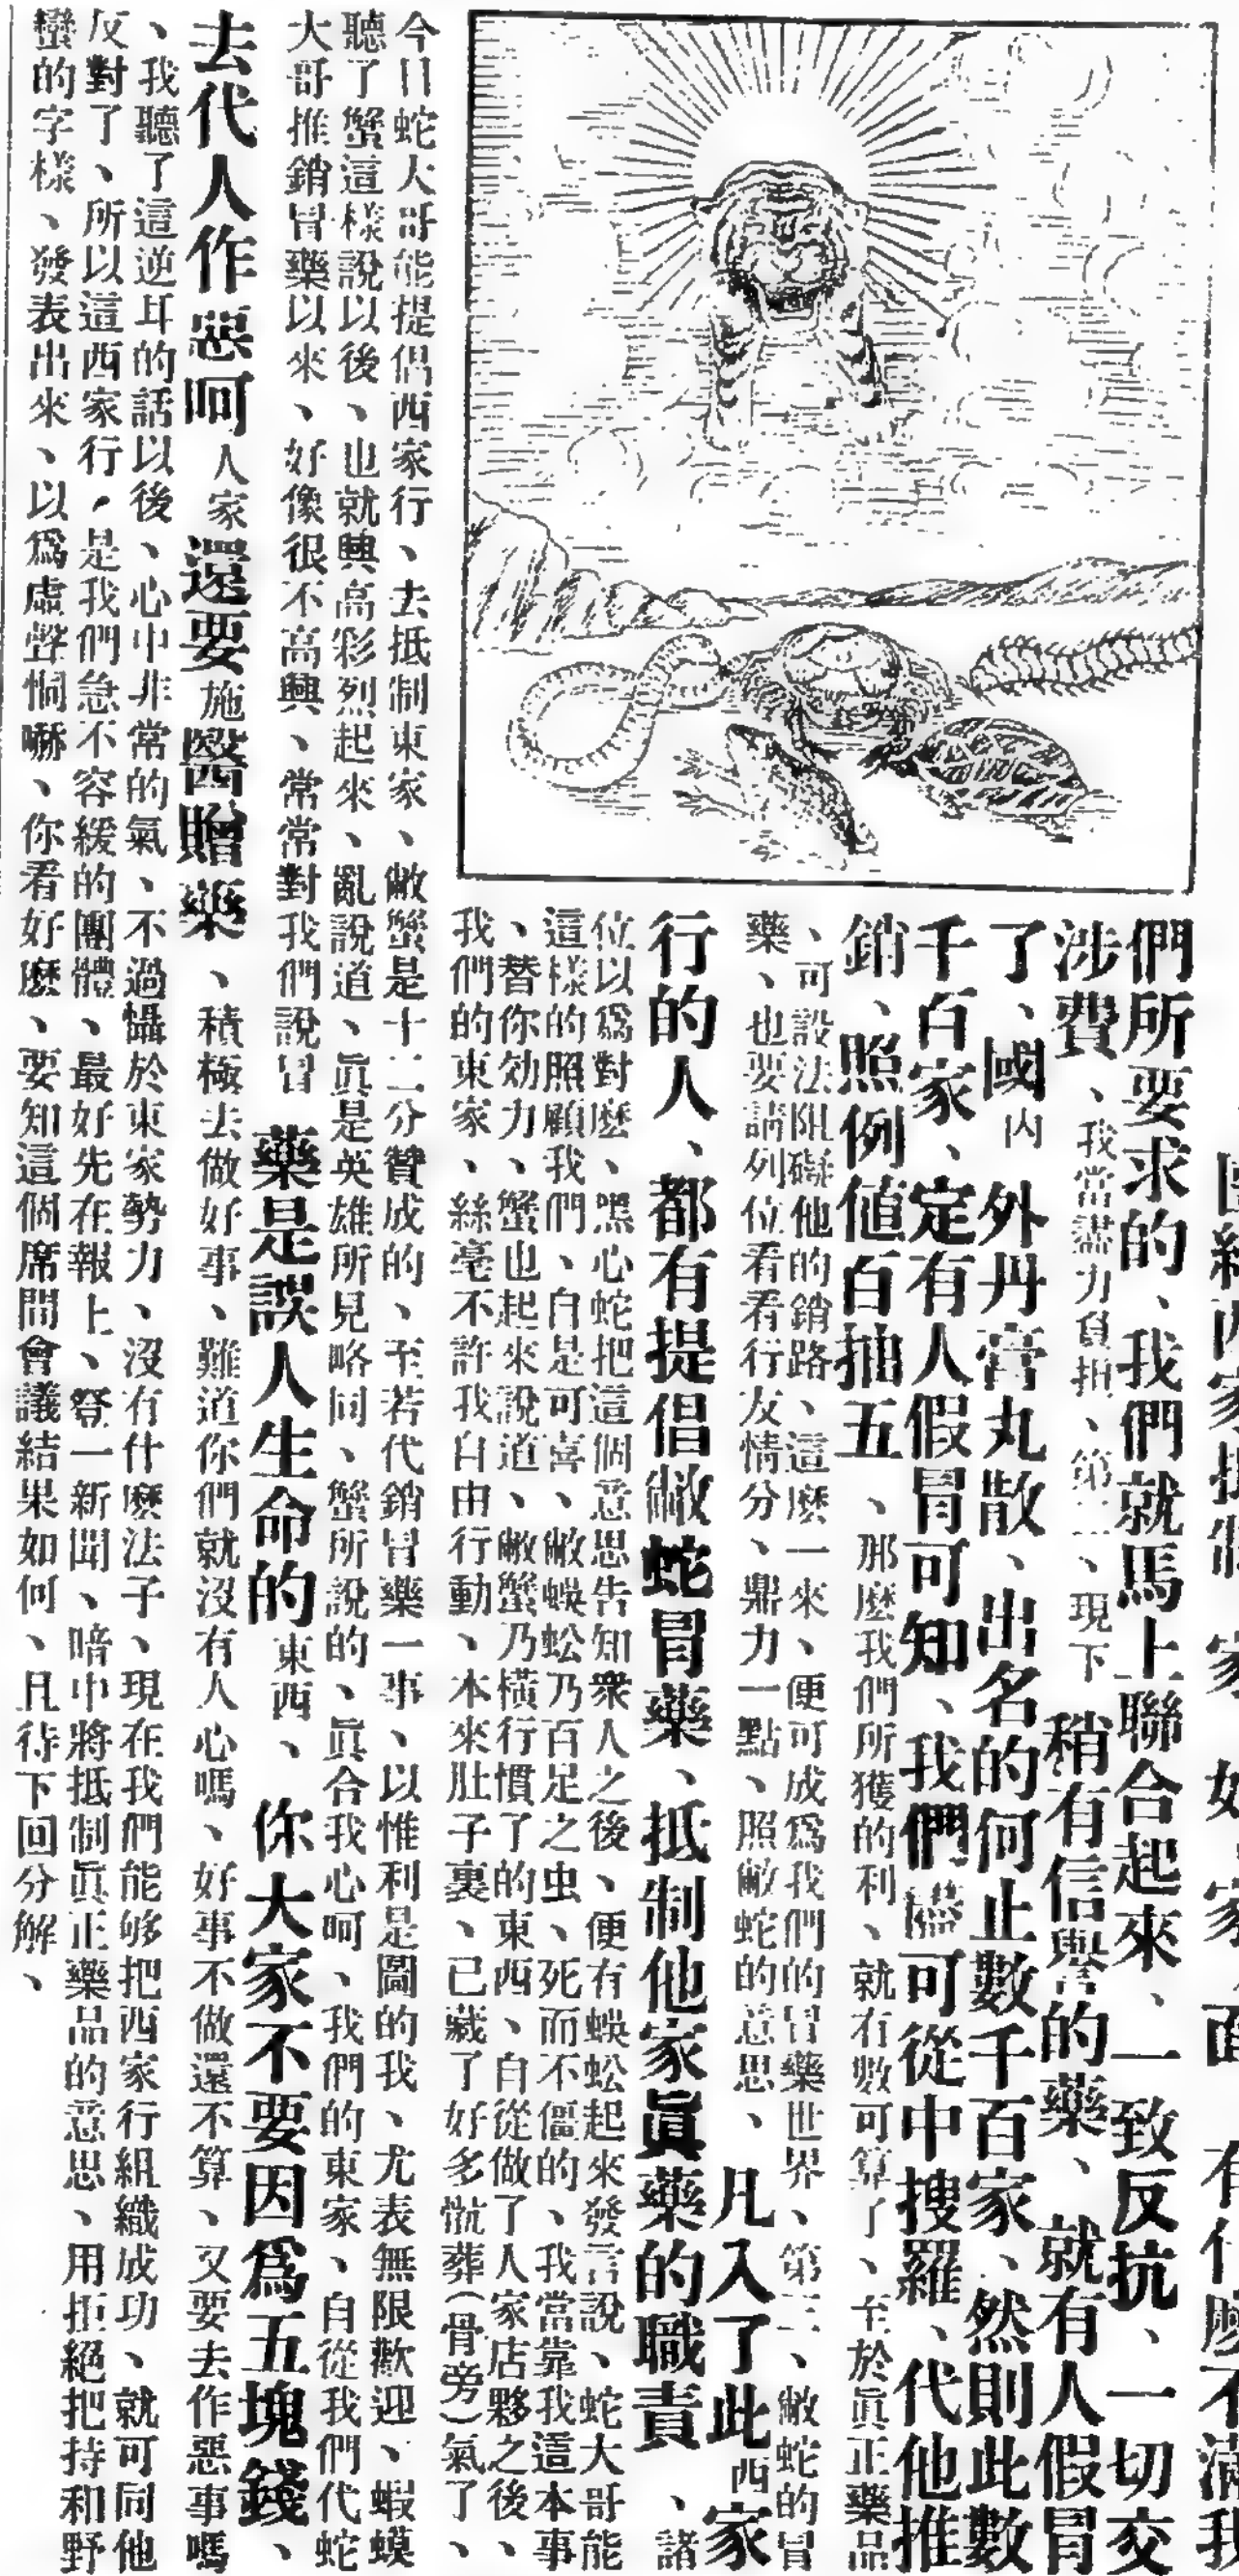 們所要求的、我們就馬上聯合起來、一致反抗、一切交
涉費、我當盡力負担、第二、現下稍有信譽的藥、就有人假冒
了、國內外丹膏丸散、出名的何止數千百家、然則此數
千百家、定有人假冒可知、我們儘可從中搜羅、代他推
銷、照例値百抽五、那麽我們所獲的利、就有數可算了、至於眞正藥品
、可設法阻礙他的銷路、這麽一來、便可成爲我們的冒藥世界、第三、敝蛇的冒
藥、也要請列位看看行友情分、鼎力一點、照敝蛇的意思、凡入了此西家
行的人、都有提倡敝蛇冒藥、抵制他家眞藥的職責、諸
位以爲對麽、黑心蛇把這個意思告知衆人之後、便有蜈蚣起來發言說、蛇大哥能
這樣的照顧我們、自是可喜、敝蜈蚣乃百足之虫、死而不僵的、我當靠我這本事
、替你効力、蟹也起來說道、敝蟹乃橫行慣了的東西、自從做了人家店夥之後、
我們的東家、絲毫不許我自由行動、本來肚子裏、已藏了好多骯葬(骨旁)氣了、
今日蛇大哥能提倡西家行、去抵制東家、敝蟹是十二分贊成的、至若代銷冒藥一事、以惟利是圖的我、尤表無限歡迎、蝦蟆
聽了蟹這樣說以後、也就興高彩烈起來、亂說道、眞是英雄所見略同、蟹所說的、眞合我心呵、我們的東家、自從我們代蛇
大哥推銷冒藥以來、好像很不高興、常常對我們說冒藥是誤人生命的東西、你大家不要因爲五塊錢、
去代人作惡呵人家還要施醫贈藥、積極去做好事、難道你們就沒有人心嗎、好事不做還不算、又要去作惡事嗎
、我聽了這逆耳的話以後、心中非常的氣、不過懾於東家勢力、沒有什麽法子、現在我們能够把西家行組織成功、就可同他
反對了、所以這西家行、是我們急不容緩的團體、最好先在報上、登一新聞、暗中將抵制眞正藥品的意思、用拒絕把持和野
蠻的字樣、發表出來、以爲虛聲恫嚇、你看好麽、要知這個席間會議結果如何、且待下回分解、